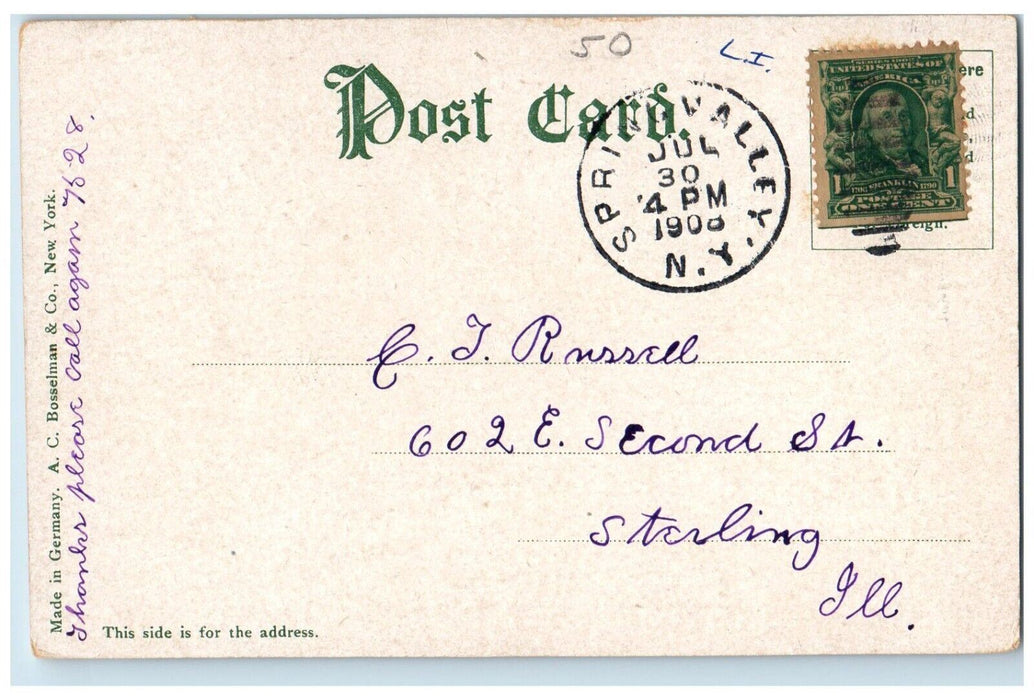 50
L.I.
Post Card.
SPRING VALLEY.
JUL
30
4 PM
1908
N.Y.
ere
d
d
reign.
SERIES 1902
UNITED STATES OF
AMERICA
1 1706 FRANKLIN 1790 1
POSTAGE
ONE CENT
C. T. Russell
602 E. Second St.
Sterling
Ill.
Made in Germany. A. C. Bosselman & Co., New York.
Thanks please call again
This side is for the address.